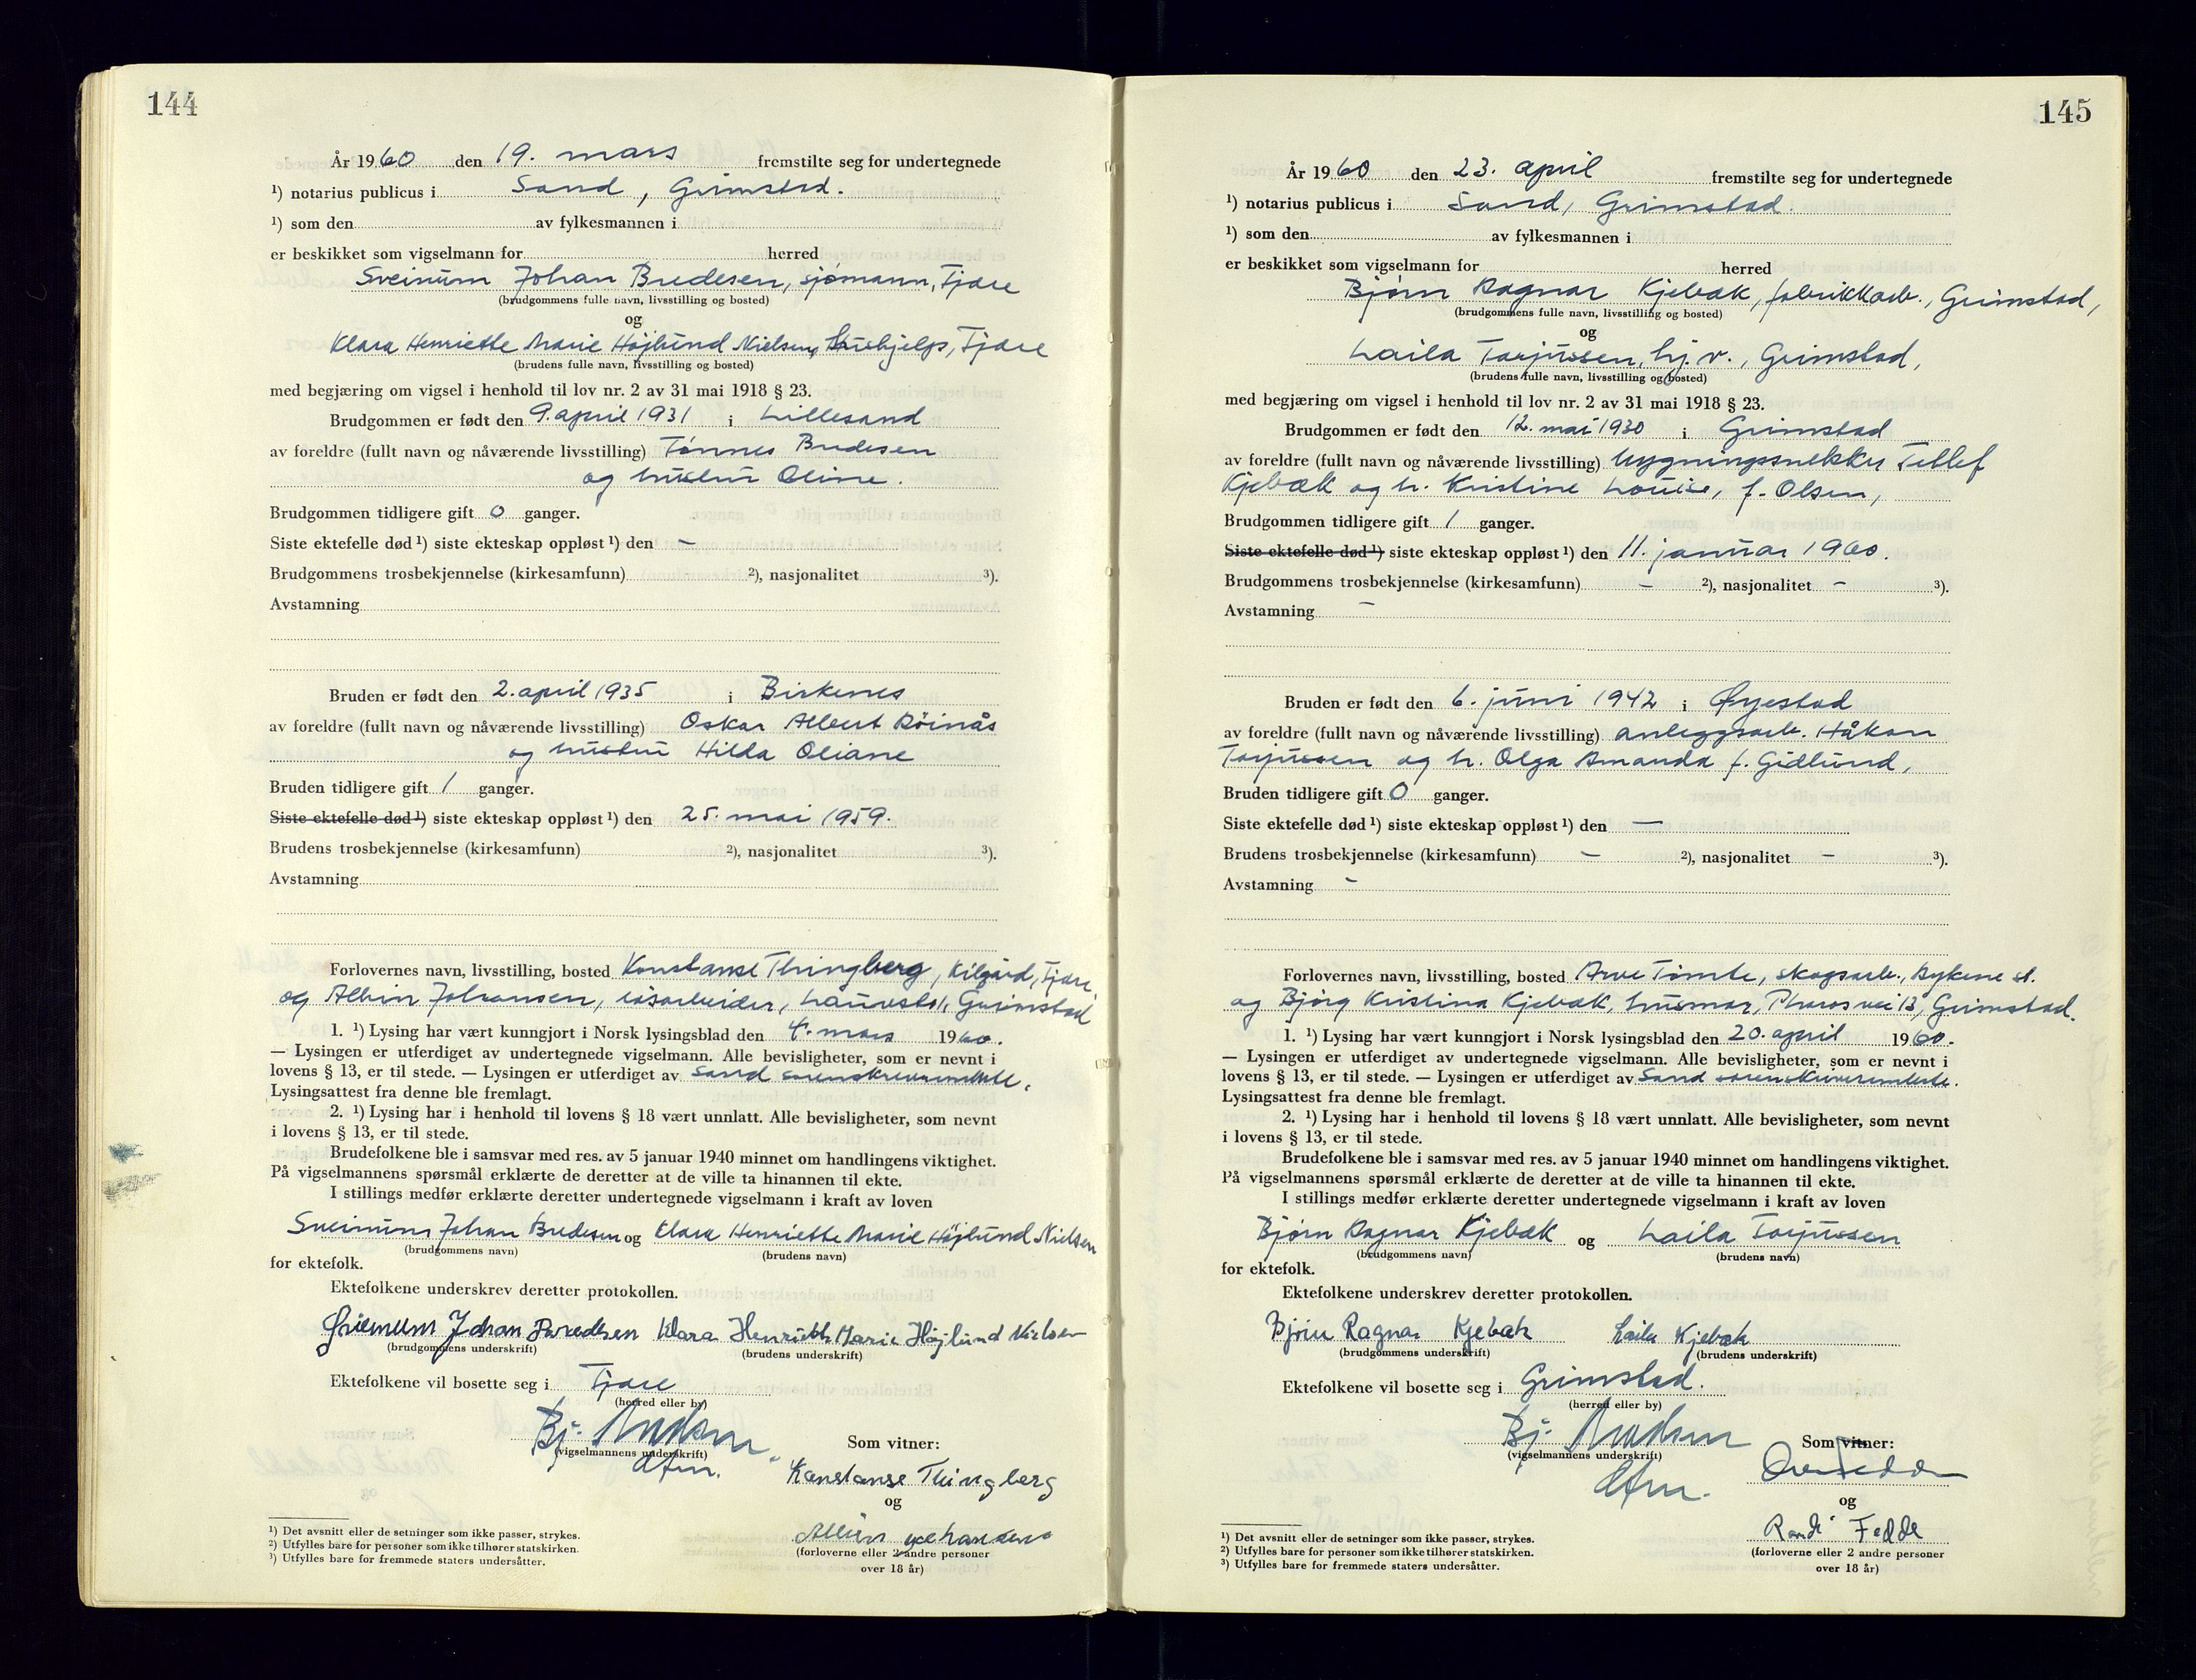 144
År 1960 den 19. mars fremstilte seg for undertegnede
¹) notarius publicus i Sand, Grimstad.
¹) som den av fylkesmannen i
er beskikket som vigselmann for herred
Sveinum Johan Bredesen, sjømann, Fjære
(brudgommens fulle navn, livsstilling og bosted)
og
Klara Henriette Marie Højlund Nielsen, hushjelp, Fjære
(brudens fulle navn, livsstilling og bosted)
med begjæring om vigsel i henhold til lov nr. 2 av 31 mai 1918 § 23.
Brudgommen er født den 9. april 1931 i Lillesand
av foreldre (fullt navn og nåværende livsstilling) Tønnes Bredesen
og hustru Oline.
Brudgommen tidligere gift 0 ganger.
Siste ektefelle død ¹) siste ekteskap oppløst ¹) den –
Brudgommens trosbekjennelse (kirkesamfunn) ²), nasjonalitet ³).
Avstamning
Bruden er født den 2. april 1935 i Birkenes
av foreldre (fullt navn og nåværende livsstilling) Oskar Albert Röinås
og hustru Hilda Oliane
Bruden tidligere gift 1 ganger.
Siste ektefelle død ¹) siste ekteskap oppløst ¹) den 25. mai 1959.
Brudens trosbekjennelse (kirkesamfunn) ²), nasjonalitet ³).
Avstamning
Forlovernes navn, livsstilling, bosted Konstanse Thingberg, Kilgård, Fjære
og Albin Johansen, løsarbeider, Grimstad
1. ¹) Lysing har vært kunngjort i Norsk lysingsblad den 4. mars 1960.
— Lysingen er utferdiget av undertegnede vigselmann. Alle bevisligheter, som er nevnt i
lovens § 13, er til stede. — Lysingen er utferdiget av Sand sorenskriverembete.
Lysingsattest fra denne ble fremlagt.
2. ¹) Lysing har i henhold til lovens § 18 vært unnlatt. Alle bevisligheter, som nevnt
i lovens § 13, er til stede.
Brudefolkene ble i samsvar med res. av 5 januar 1940 minnet om handlingens viktighet.
På vigselmannens spørsmål erklærte de deretter at de ville ta hinannen til ekte.
I stillings medfør erklærte deretter undertegnede vigselmann i kraft av loven
Sveinum Johan Bredesen og Klara Henriette Marie Højlund Nielsen
(brudgommens navn) (brudens navn)
for ektefolk.
Ektefolkene underskrev deretter protokollen.
Sveinum Johan Bredesen Klara Henriette Marie Højlund Nielsen
(brudgommens underskrift) (brudens underskrift)
Ektefolkene vil bosette seg i Fjære
(herred eller by)
Bj.
(vigselmannens underskrift)
Som vitner:
Konstanse Thingberg
og
Albin Johansen
(forloverne eller 2 andre personer
over 18 år)
¹) Det avsnitt eller de setninger som ikke passer, strykes.
²) Utfylles bare for personer som ikke tilhører statskirken.
³) Utfylles bare for fremmede staters undersåtter.
145
År 1960 den 23. april fremstilte seg for undertegnede
¹) notarius publicus i Sand, Grimstad.
¹) som den av fylkesmannen i
er beskikket som vigselmann for herred
Bjørn Ragnar Kjebæk, fabrikkarb., Grimstad,
(brudgommens fulle navn, livsstilling og bosted)
og
Laila Torjussen, hj.v., Grimstad,
(brudens fulle navn, livsstilling og bosted)
med begjæring om vigsel i henhold til lov nr. 2 av 31 mai 1918 § 23.
Brudgommen er født den 12. mai 1930 i Grimstad
av foreldre (fullt navn og nåværende livsstilling) bygningssnekker Tellef
Kjebæk og h. Kristine Louise, f. Olsen,
Brudgommen tidligere gift 1 ganger.
Siste ektefelle død ¹) siste ekteskap oppløst ¹) den 11. januar 1960.
Brudgommens trosbekjennelse (kirkesamfunn) – ²), nasjonalitet – ³).
Avstamning –
Bruden er født den 6. juni 1942 i Øyestad
av foreldre (fullt navn og nåværende livsstilling) anleggsarb. Håkon
Torjussen og h. Olga Amanda f. Gidlund,
Bruden tidligere gift 0 ganger.
Siste ektefelle død ¹) siste ekteskap oppløst ¹) den —
Brudens trosbekjennelse (kirkesamfunn) – ²), nasjonalitet – ³).
Avstamning –
Forlovernes navn, livsstilling, bosted Arve Tømte, skogsarb., Rykene st.
og Bjørg Kristina Kjebæk, husmor, Pharos vei 13, Grimstad.
1. ¹) Lysing har vært kunngjort i Norsk lysingsblad den 20. april 1960.
— Lysingen er utferdiget av undertegnede vigselmann. Alle bevisligheter, som er nevnt i
lovens § 13, er til stede. — Lysingen er utferdiget av Sand sorenskriverembete.
Lysingsattest fra denne ble fremlagt.
2. ¹) Lysing har i henhold til lovens § 18 vært unnlatt. Alle bevisligheter, som nevnt
i lovens § 13, er til stede.
Brudefolkene ble i samsvar med res. av 5 januar 1940 minnet om handlingens viktighet.
På vigselmannens spørsmål erklærte de deretter at de ville ta hinannen til ekte.
I stillings medfør erklærte deretter undertegnede vigselmann i kraft av loven
Bjørn Ragnar Kjebæk og Laila Torjussen
(brudgommens navn) (brudens navn)
for ektefolk.
Ektefolkene underskrev deretter protokollen.
Bjørn Ragnar Kjebæk Laila Kjebæk
(brudgommens underskrift) (brudens underskrift)
Ektefolkene vil bosette seg i Grimstad.
(herred eller by)
Bj.
(vigselmannens underskrift)
Som vitner:
og
Randi Fedde
(forloverne eller 2 andre personer
over 18 år)
¹) Det avsnitt eller de setninger som ikke passer, strykes.
²) Utfylles bare for personer som ikke tilhører statskirken.
³) Utfylles bare for fremmede staters undersåtter.